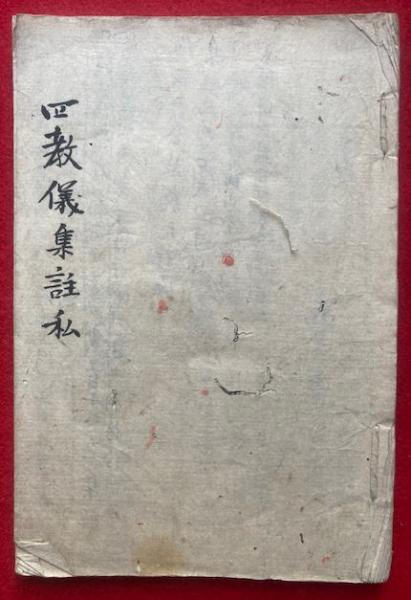 四教儀集註私